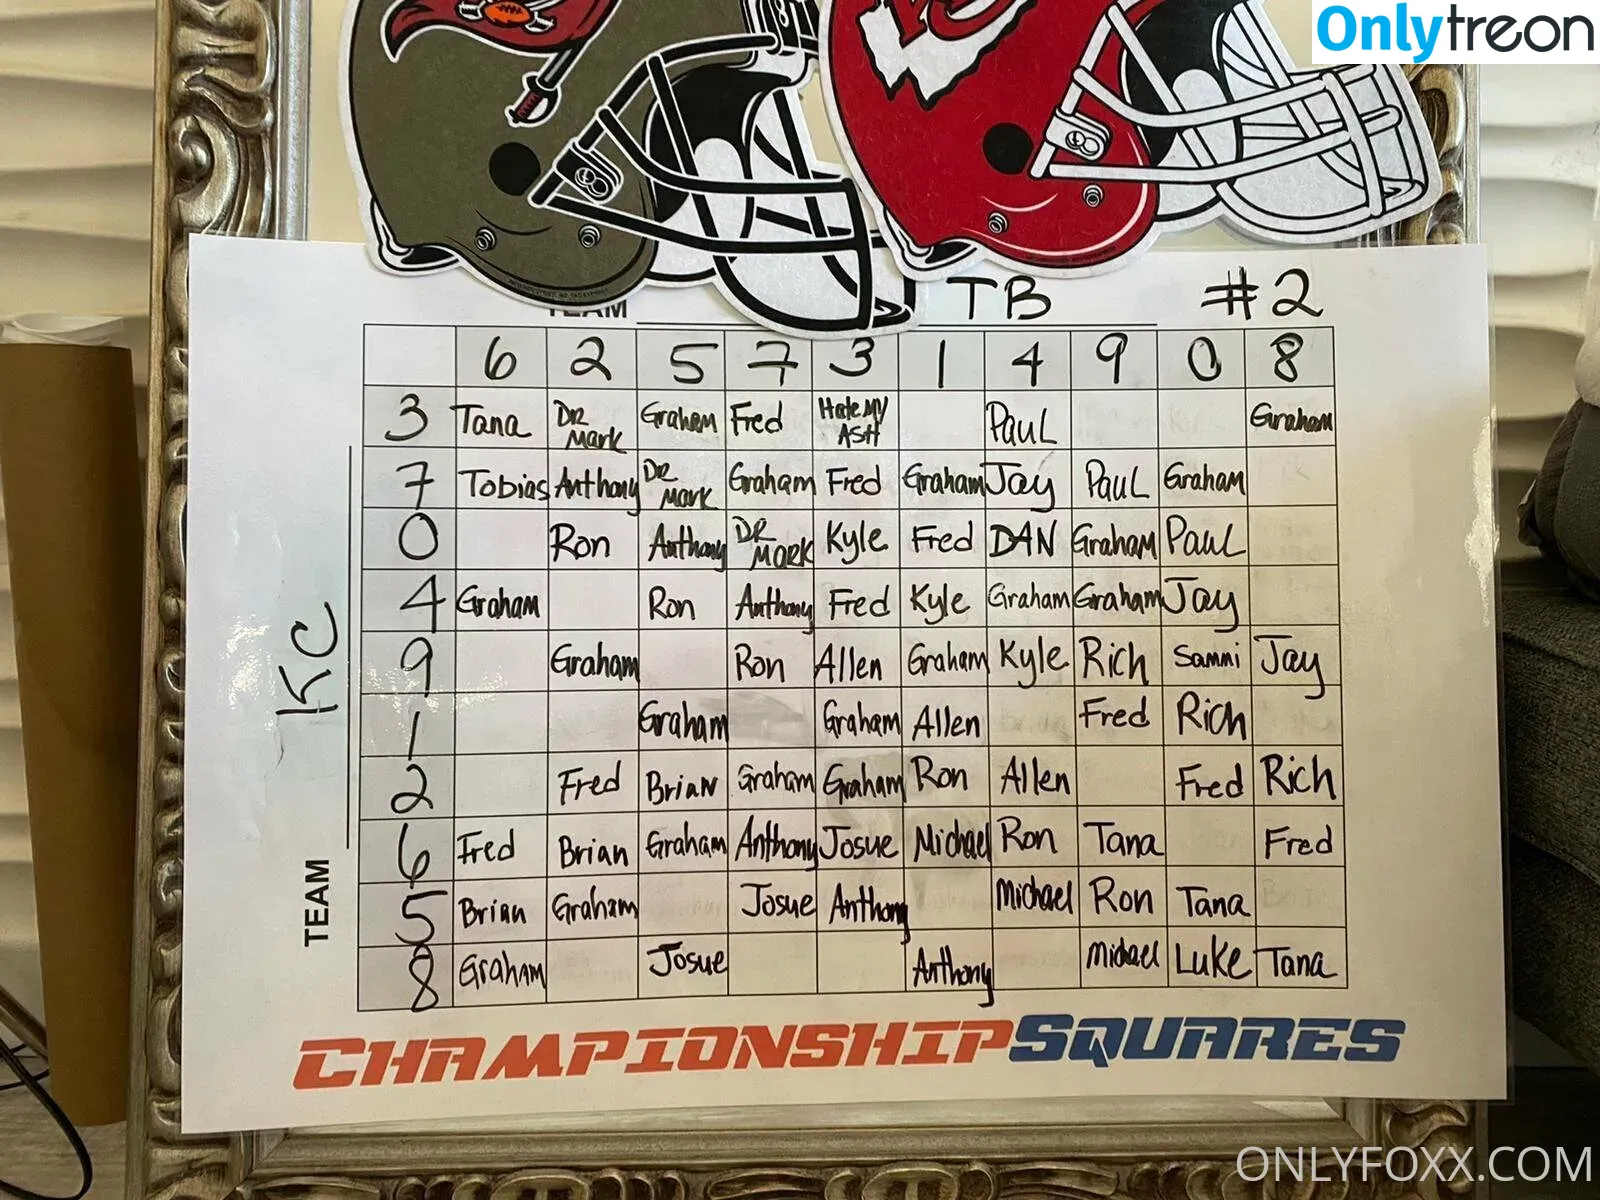 Onlytreon
TEAM TB #2
6 2 5 7 3 1 4 9 0 8
3 Tana DR MARK Graham Fred Hate My ASH Paul Graham
7 Tobias Anthony DR MARK Graham Fred Graham Jay Paul Graham
0 Ron Anthony DR MARK Kyle Fred DAN Graham Paul
4 Graham Ron Anthony Fred Kyle Graham Graham Jay
9 Graham Ron Allen Graham Kyle Rich Sammi Jay
1 Graham Graham Allen Fred Rich
2 Fred Brian Graham Graham Ron Allen Fred Rich
6 Fred Brian Graham Anthony Josue Michael Ron Tana Fred
5 Brian Graham Josue Anthony Michael Ron Tana
8 Graham Josue Anthony Michael Luke Tana
TEAM KC
CHAMPIONSHIPSQUARES
ONLYFOXX.COM